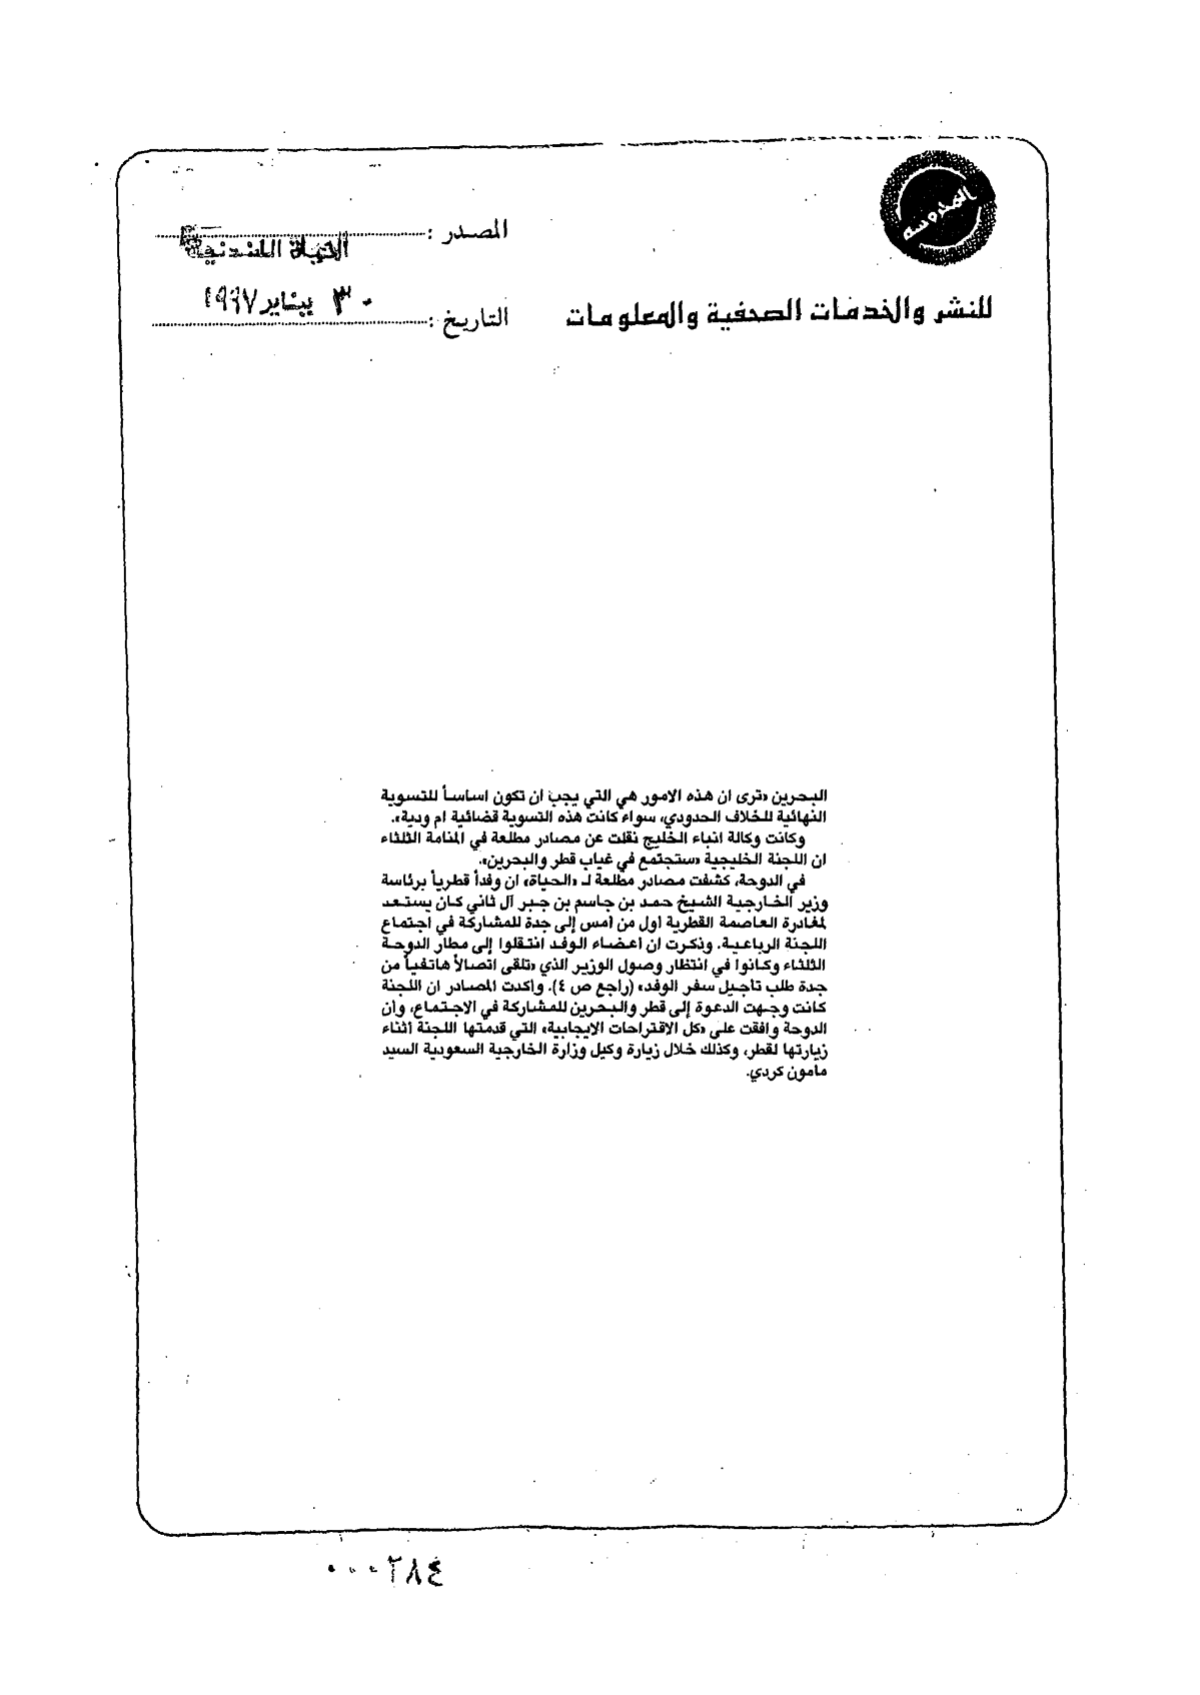 المصدر :
الحياة اللندنية
التاريخ :
٣٠ يناير ١٩٩٧
للنشر والخدمات الصحفية والمعلومات
البحرين «ترى ان هذه الامور هي التي يجب ان تكون اساساً للتسوية
النهائية للخلاف الحدودي، سواء كانت هذه التسوية قضائية ام ودية».
وكانت وكالة انباء الخليج نقلت عن مصادر مطلعة في المنامة الثلثاء
ان اللجنة الخليجية «ستجتمع في غياب قطر والبحرين».
في الدوحة، كشفت مصادر مطلعة لـ «الحياة» ان وفداً قطرياً برئاسة
وزير الخارجية الشيخ حمد بن جاسم بن جبر آل ثاني كان يستعد
لمغادرة العاصمة القطرية أول من أمس إلى جدة للمشاركة في اجتماع
اللجنة الرباعية. وذكرت ان أعضاء الوفد انتقلوا إلى مطار الدوحة
الثلثاء وكانوا في انتظار وصول الوزير الذي «تلقى اتصالاً هاتفياً من
جدة طلب تأجيل سفر الوفد» (راجع ص ٤). وأكدت المصادر ان اللجنة
كانت وجهت الدعوة إلى قطر والبحرين للمشاركة في الاجتماع، وأن
الدوحة وافقت على «كل الاقتراحات الايجابية» التي قدمتها اللجنة أثناء
زيارتها لقطر، وكذلك خلال زيارة وكيل وزارة الخارجية السعودية السيد
مأمون كردي.
٠٠٠٢٨٤